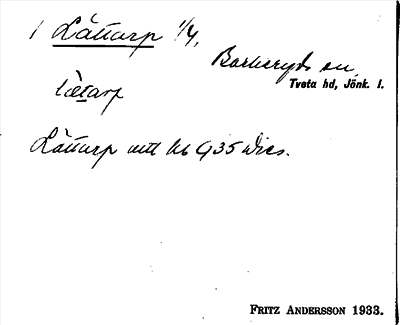 1 Lättarp 1/4,
Barkeryds sn,
Tveta hd, Jönk. l.
lætarp
Lättarp
FRITZ ANDERSSON 1933.